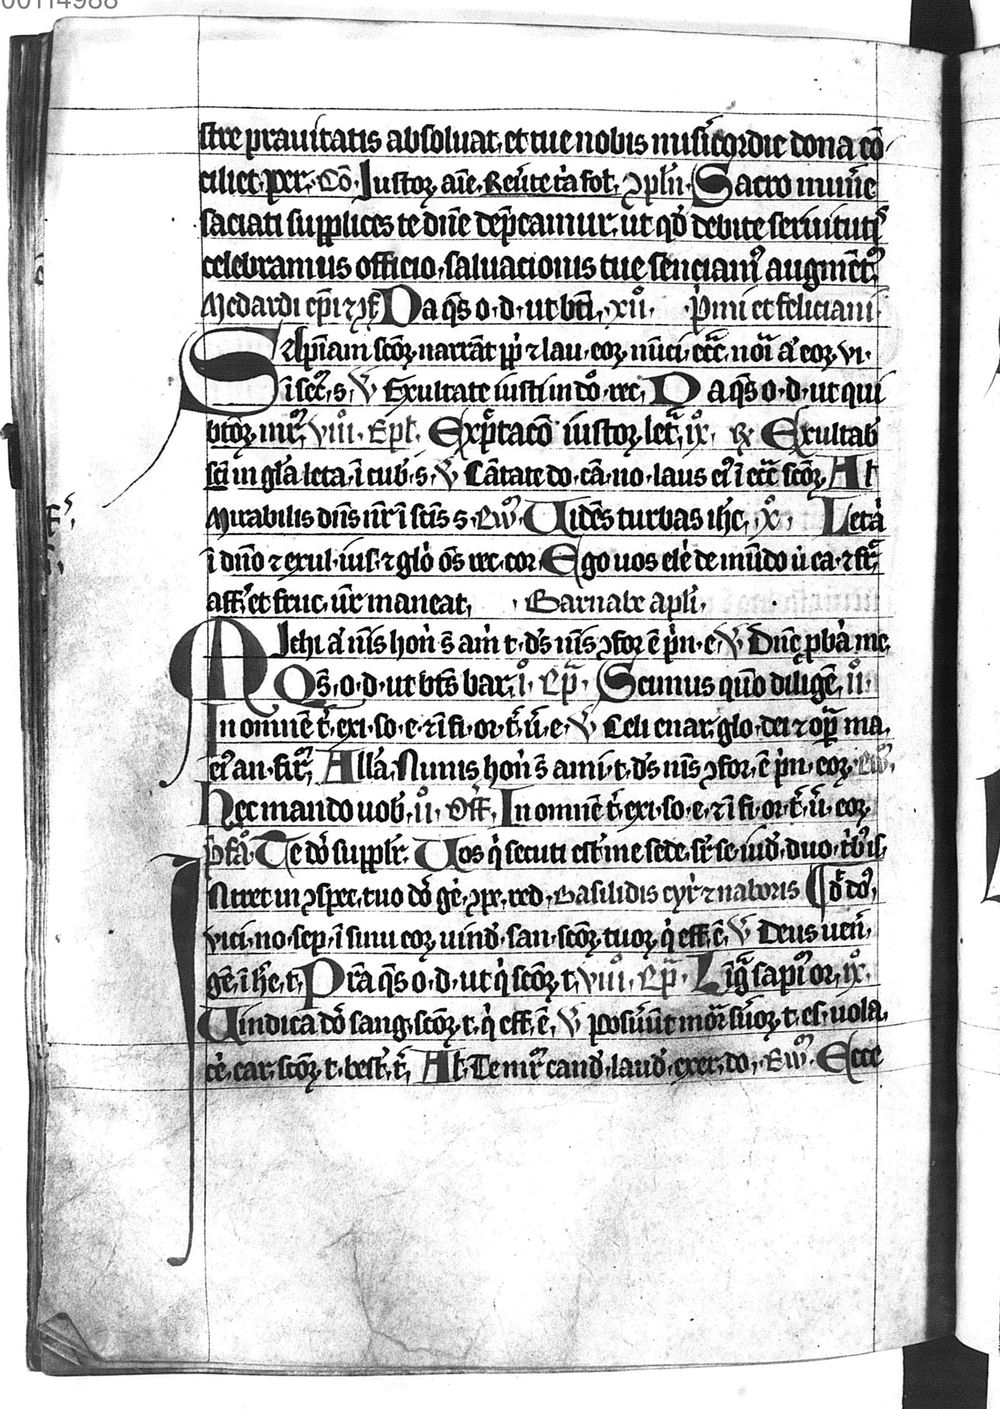 00114988
stre prauitatis absoluat. et tue nobis misericordie dona cō
ciliet. per. Cō. Iustoꝝ aīe. Sacro mun̄e
saciati supplices te dn̄e dep̄camur. ut qd̄ debite seruitutꝭ
celebramus officio. saluacionis tue senciamꝰ augm̄tū.
Medardi ep̄i Da q̄s o. d. ut bt̄i. xii. p̄mi et feliciani
Sapīam sc̄oꝝ narrāt pp̄li ⁊ lau. eoꝝ nūci. ecc̄. noīa a᷑ eoꝝ vi.
Exultate iusti in dn̄o. rec. Da q̄s o. d. ut qui
btōꝝ mr̄ꝝ. viii. Ep̄l. Exp̄tacō iustoꝝ let. ix. ꝶ Exultab̄
sc̄i in gl̄a leta. ī cub. s. ꝟ Cātate do. cā. no. laus eiꝰ ī ecc̄ sc̄oꝝ. Al
Mirabilis dn̄s nr̄ ī sc̄is s. Ew̄. Uidēs turbas ihc̄. x. Letā
ī dn̄o ⁊ exul. ius. ⁊ glo. ōs rec. cor Ego uos ele. de mūdo ut ea. ⁊ fr̄
aff. et fruc. ur̄ maneat. Barnabe apl̄i.
Michi a᷑ nīs hon̄. s̄ ami t. ds̄ nīs ꝯfor ē pn̄. e. ꝟ. Dn̄e ꝓba. me.
Qs̄. o. d. ut bt̄s bar. i. Ep̄. Scimus qm̄o diligē. ii.
In omnē t̄. exi. so. e. ⁊ ī fi. or. t̄. u̅. e. ꝟ Celi enar. glo. dei ⁊ oꝑa ma.
eiꝰ an. fir. Alla. Nimis hon̄. s̄ ami. t. ds̄ nīs ꝯfor. ē pn̄. eoꝝ. Ew̄.
Hec mando uob. ii. Off. In omnē t̄. exi. so. e. ⁊ ī fi. or. t̄. u̅. eoꝝ.
p̄fā. Te dn̄e supplr̄. Uos q̄ secuti estis me sede. sr̄ se. iud. duo. trib. isl.
Intret in ꝯspec. tuo dn̄e ge. ꝯpe. red. Basilidis cyr̄ ⁊ naboris
vici. no. sep. ī sinu eoꝝ uind. san. sc̄oꝝ. tuoꝝ. q̄ eff. ē. ꝟ Deus uen.
gē. ī he. t. Pr̄a q̄s o. d. ut q̄ sc̄oꝝ. t. viii. Ep̄. Lig̅ sapiū or. ix.
Uindica dn̄e sang. sc̄oꝝ. t. q̄ eff. ē. ꝟ Posuerūt mor. suoꝝ. t. es. uola.
ce. car. sc̄oꝝ. t. best. t̄. Al. Te mr̄ cand. laud. exer. do. Ew̄. Ecce